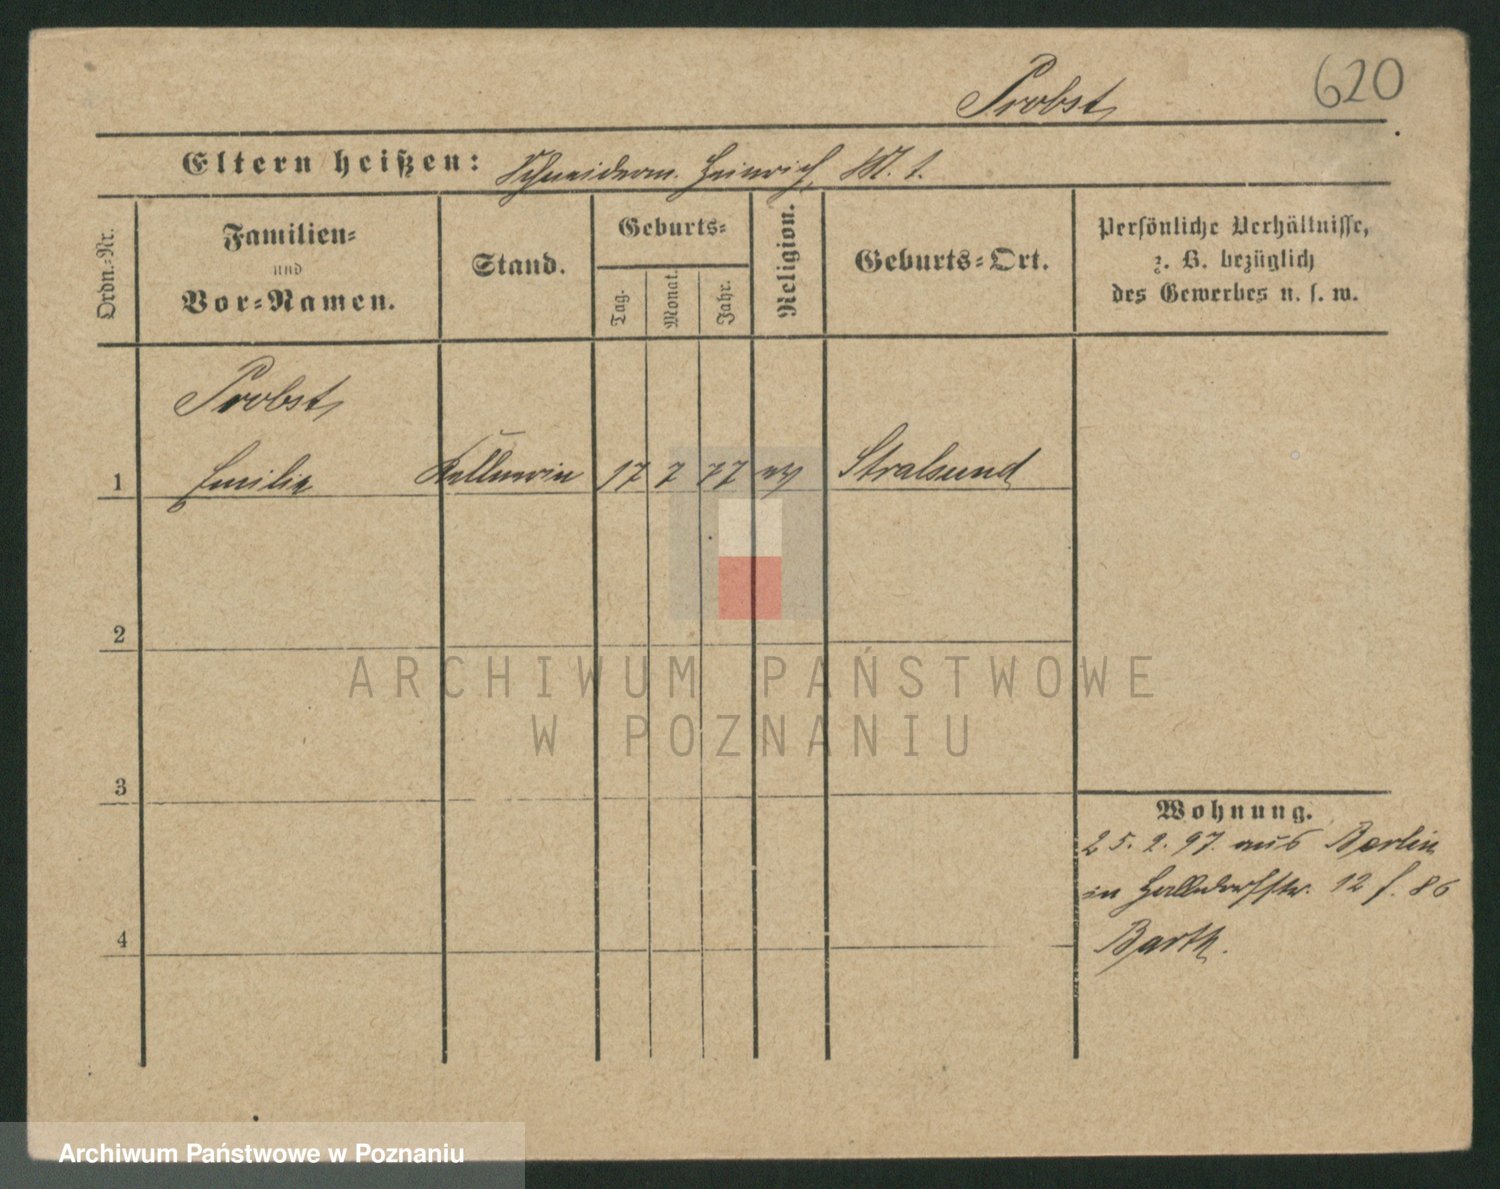 620
Probst
Eltern heißen: Schneiderm. Heinrich, M. t.
Ordn.-Nr.
Familien-
und
Vor-Namen.
Stand.
Geburts-
Tag.
Monat.
Jahr.
Religion.
Geburts-Ort.
Persönliche Verhältnisse,
z. B. bezüglich
des Gewerbes u. s. w.
Probst
1 Emilie Kellnerin 17 7 77 ev Stralsund
2
ARCHIWUM PAŃSTWOWE
W POZNANIU
3
Wohnung.
25.2.97. aus Berlin
in 12 f. 86
4
Barth.
Archiwum Państwowe w Poznaniu